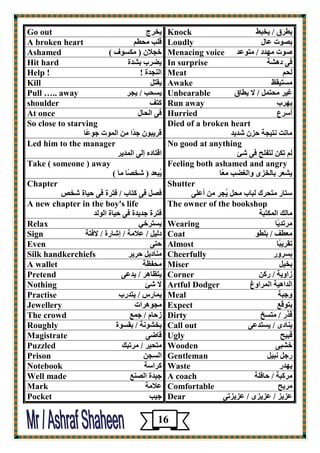 Go out يخرج Knock يطرق / يخبط
A broken heart قلب محطم Loudly بصوت عال
Ashamed خجلان ( مكسوف ) Menacing voice صوت مهدد / متوعد
Hit hard يضرب بشدة In surprise فى دهشة
Help ! النجدة ! Meat لحم
Kill يقتل Awake مستيقظ
Pull ….. away يسحب / يجر Unbearable غير محتمل / لا يطاق
shoulder كتف Run away يهرب
At once فى الحال Hurried أسرع
So close to starving Died of a broken heart
قريبون جدًا من الموت جوعًا ماتت نتيجة حزن شديد
Led him to the manager No good at anything
اقتاده إلى المدير لم تكن لتفلح فى شئ
Take ( someone ) away Feeling both ashamed and angry
يُبعد ( شخصًا ما ) يشعر بالخزى والغضب معًا
Chapter Shutter
فصل فى كتاب / فترة فى حياة شخص ستار متحرك لباب محل يُجر من أعلى
A new chapter in the boy's life The owner of the bookshop
فترة جديدة فى حياة الولد مالك المكتبة
Relax يسترخي Wearing مرتديًا
Sign دليل / علامة / إشارة / لافتة Coat معطف / بلطو
Even حتى Almost تقريبًا
Silk handkerchiefs مناديل حرير Cheerfully بسرور
A wallet محفظة Miser بخيل
Pretend يتظاهر / يدعى Corner زاوية / ركن
Nothing لا شئ Artful Dodger الداهية المراوغ
Practise يمارس / يتدرب Meal وجبة
Jewellery مجوهرات Expect يتوقع
The crowd زحام / جمع Dirty قذر / متسخ
Roughly بخشونة / بقسوة Call out ينادى / يستدعى
Magistrate قاضى Ugly قبيح
Puzzled متحير / مرتبك Wooden خشبى
Prison السجن Gentleman رجل نبيل
Notebook كراسة Waste يهدر
Well made جيدة الصنع A coach مركبة / حافلة
Mark علامة Comfortable مريح
Pocket جيب Dear عزيز / عزيزى / عزيزتي
Mr / Ashraf Shaheen 16